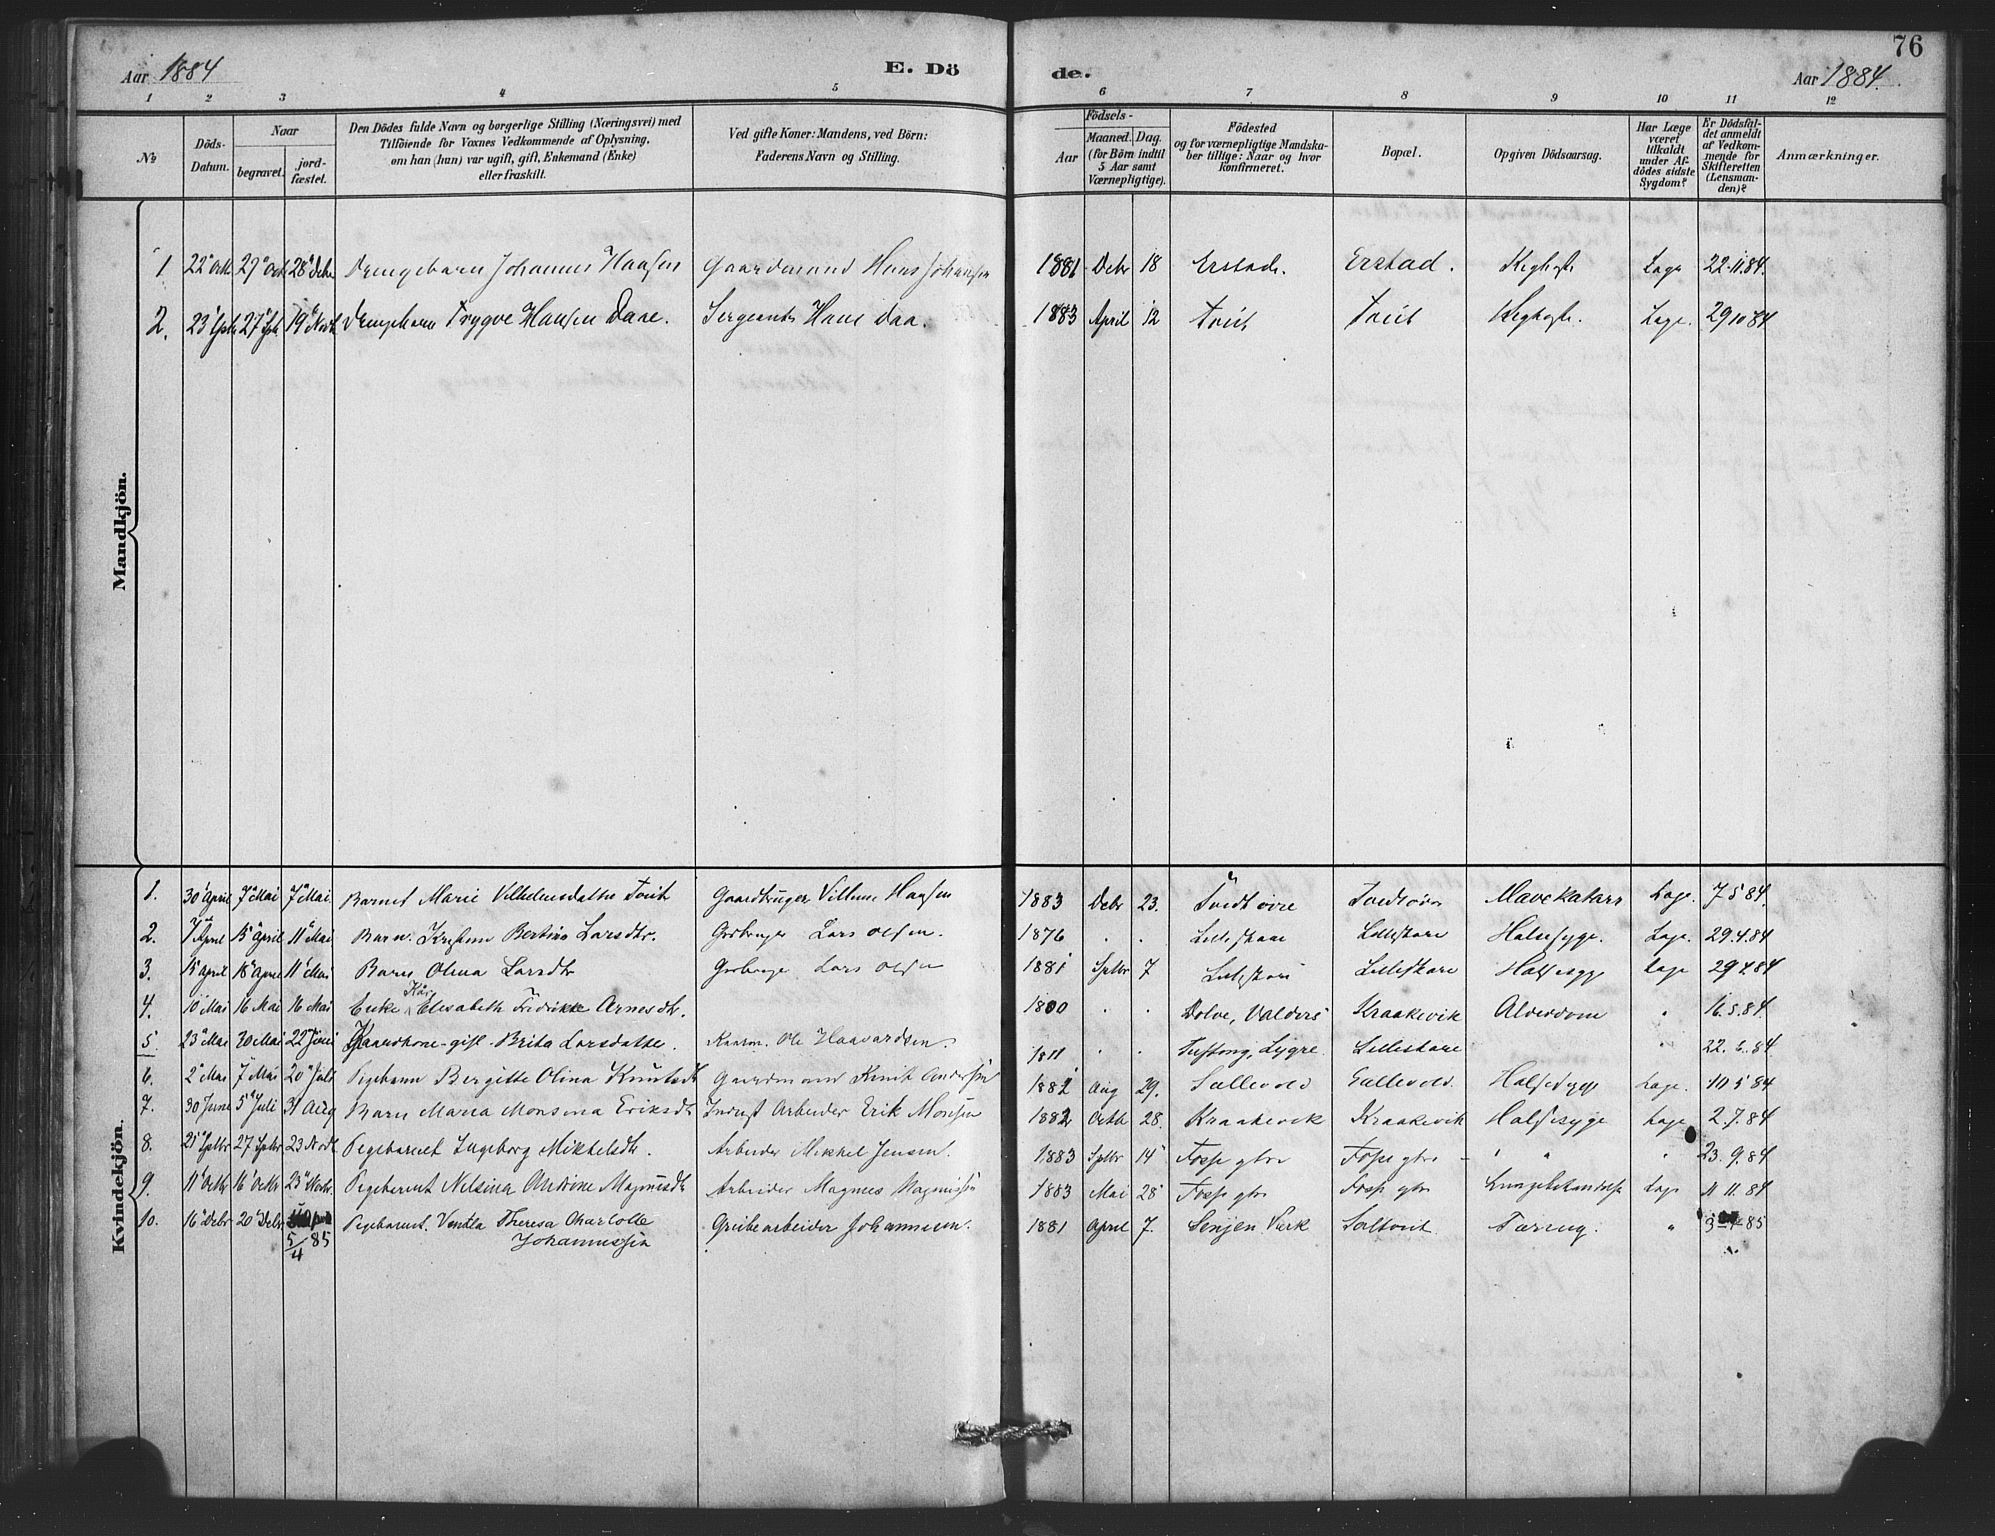 76
Aar 1884 E. Dö
de. Aar 1884.
1 2 3 4 5 6 7 8 9 10 11 12
No
Döds-Datum.
Naar
begravet.
jord-fæstet.
Den Dödes fulde Navn og borgerlige Stilling (Næringsvei) med
Tilföiende for Voxnes Vedkommende af Oplysning,
om han (hun) var ugift, gift, Enkemand (Enke)
eller fraskilt.
Ved gifte Koner: Mandens, ved Börn:
Faderens Navn og Stilling.
Födsels-
Aar
Maaned. Dag.
(for Börn indtil
5 Aar samt
Værnepligtige).
Födested
og for værnepligtige Mandska-
ber tillige: Naar og hvor
konfirmeret.
Bopæl.
Opgiven Dödsaarsag.
Har Læge
været
tilkaldt
under Af-
dödes sidste
Sygdom?
Er Dödsfal-
det anmeldt
af Vedkom-
mende for
Skifteretten
(Lensman-
den)?
Anmærkninger.
Mandkjön.
1 22 Octr 29 Octr 28 Debr Drengebarn Johannes Hansen Gaardmand Hans Johansen 1881 Debr 18 Erstad. Erstad. Kighoste Læge 22.11.84.
2. 23 27 19 Novbr Drengebarn Trygve Hansen Daae. Sergeant Hans Daa. 1883 April 12 Tveit Tveit Kighoste. Læge. 29 10 84
Kvindekjön.
1. 30 April 7 Mai 7 Mai Barnet Marie Vilhelmsdatter Tveit Gaardbruger Villum Hansen 1883 Debr 23. Tvedt övre Tvedt övre Mavekatarr Læge. 7 5 84.
2. 7 April 15 April 11 Mai Barn. Bertine Larsdtr. Grdbruger Lars Olsen. 1876 . . Lilleskare Lilleskare Halssyge. Læge. 29.4.84
3. 15 April 18 April 11 Mai Barn Olina Larsdtr Grdbruge Lars Olsen 1881 Sptbr 7 Lilleskare Lilleskare Halssyge Læge 29 4.84
4. 10 Mai 16 Mai 16 Mai Enke Elisabeth Fredrikke Arnesdtr. 1800 . . Holve, Valders Kraakevik Alderdom " 16.5.84.
5 23 Mai 30 Mai 22 Juni Gaardkone - gift - Brita Larsdatter. Kaarm. Ole Haavardsen. 1811 . . Lygre Lilleskare " 22. 6. 84
6. 2 Mai 7 Mai 20 Juli Pigebarn Bergitte Olina Knutsdtr Gaardmand Knut Andersen 1882 Aug 29. Sællevold Sællevold. Halssyge Læge. 10 5 84
7. 30 Juni 5 Juli 31 Aug Barn Maria Monsina Eriksdtr Indust Arbeider Erik Monsen 1882 Octb 28. Kraakevik Kraakevik Halssyge Læge 2.7.84
8. 21 Sptbr 27 Sptbr 23 Novb Pigebarnet Ingeborg Mikkelsdtr. Arbeider Mikkel Jensen. 1883 Sptbr 14 Fosse ytre Fosse ytre " " 23.9.84
9. 11 Octbr 16 Octbr 23 Novbr Pigebarnet Nilsina Andrine Magnusdtr Arbeider Magnus Magnussen 1883 Mai 28 Fosse ytre Fosse ytre Lungebetændelse Læge 11 11.84
10. 16 Debr 20 Debr 5/4 85 Pigebarnet. Vendla Theresa Charlotte Johannessen Grubearbeider Johannessen. 1881 April 7. Senjen Værk Tæring. "